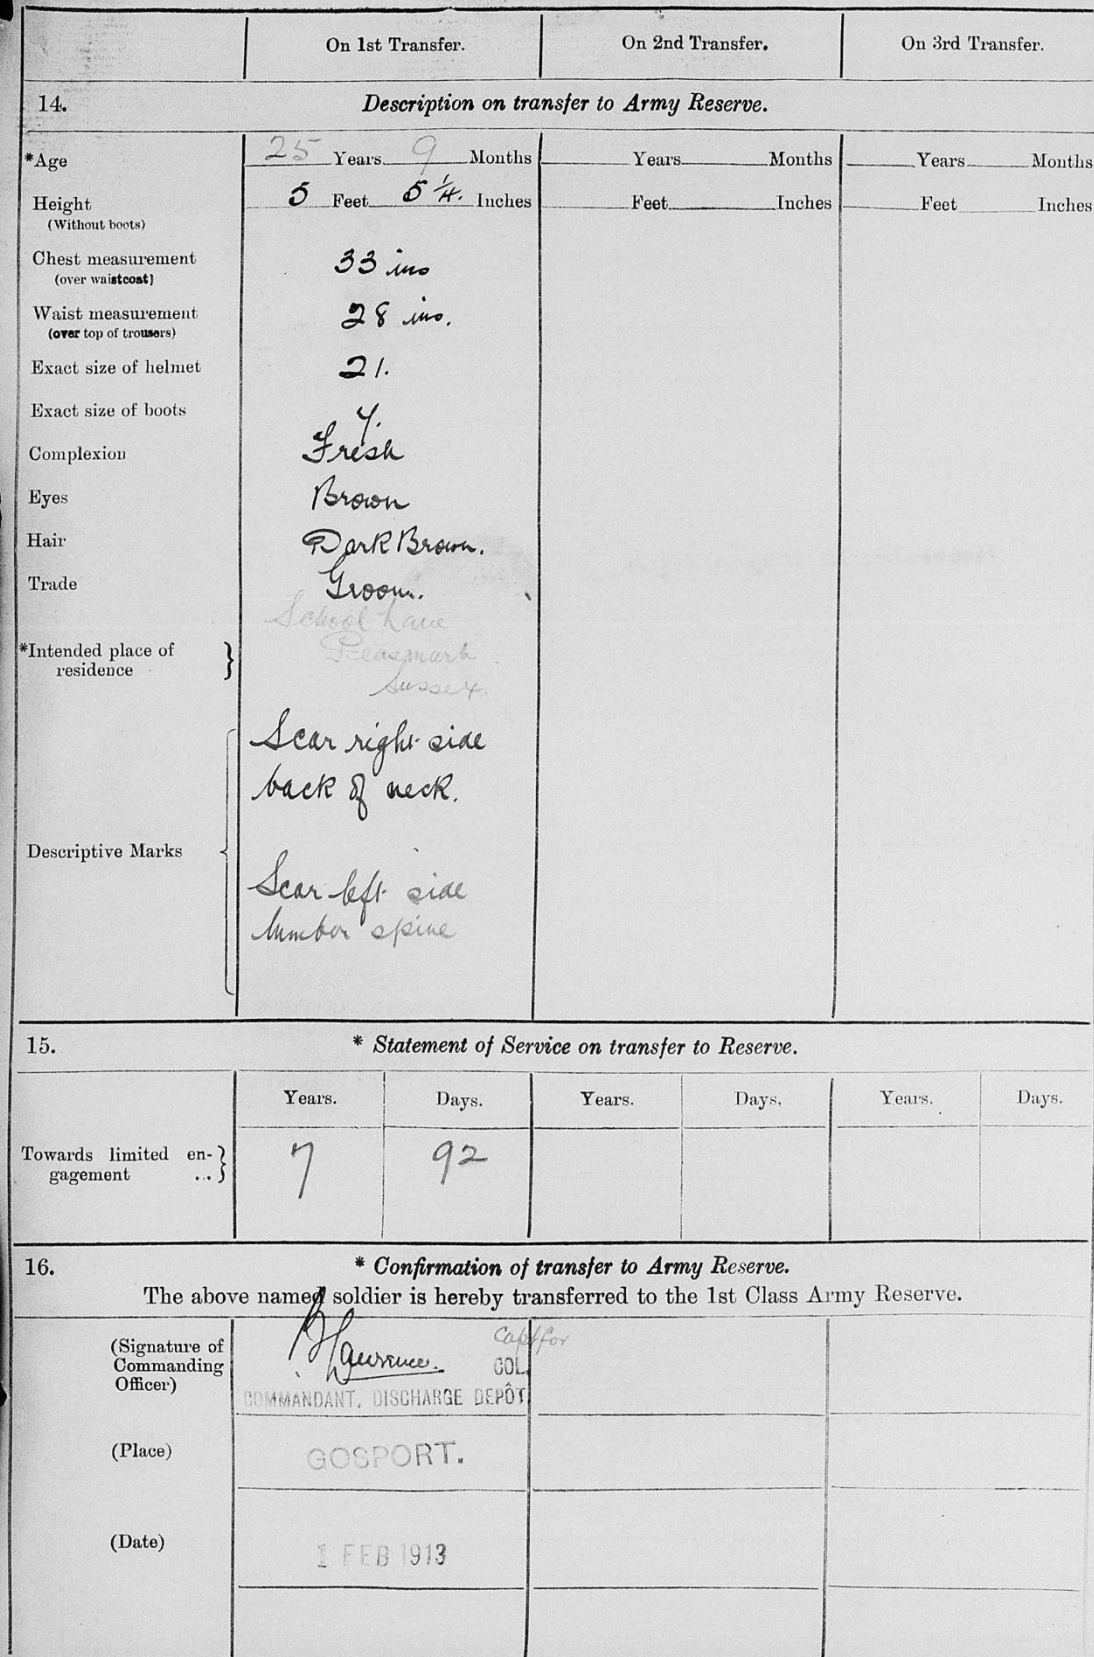 On 1st Transfer. On 2nd Transfer. On 3rd Transfer.
14. Description on transfer to Army Reserve.
*Age 25 Years 9 Months Years Months Years Months
Height 5 Feet 5 1/4. Inches Feet Inches Feet Inches
(Without boots)
Chest measurement 33 ins
(over waistcoat)
Waist measurement 28 ins.
(over top of trousers)
Exact size of helmet 21.
Exact size of boots
Complexion Fresh
Eyes Brown
Hair Dark Brown.
Trade Groom.
School Lane
*Intended place of Peasmarsh
residence
Sussex.
Scar right side
back of neck.
Descriptive Marks
Scar left side
lumbar spine
15. * Statement of Service on transfer to Reserve.
Years. Days. Years. Days. Years. Days.
Towards limited en-
gagement .. 7 92
16. * Confirmation of transfer to Army Reserve.
The above named soldier is hereby transferred to the 1st Class Army Reserve.
(Signature of Capt for
Commanding Lawrence. COL.
Officer)
COMMANDANT, DISCHARGE DEPÔT
(Place) GOSPORT.
(Date) 1 FEB 1913